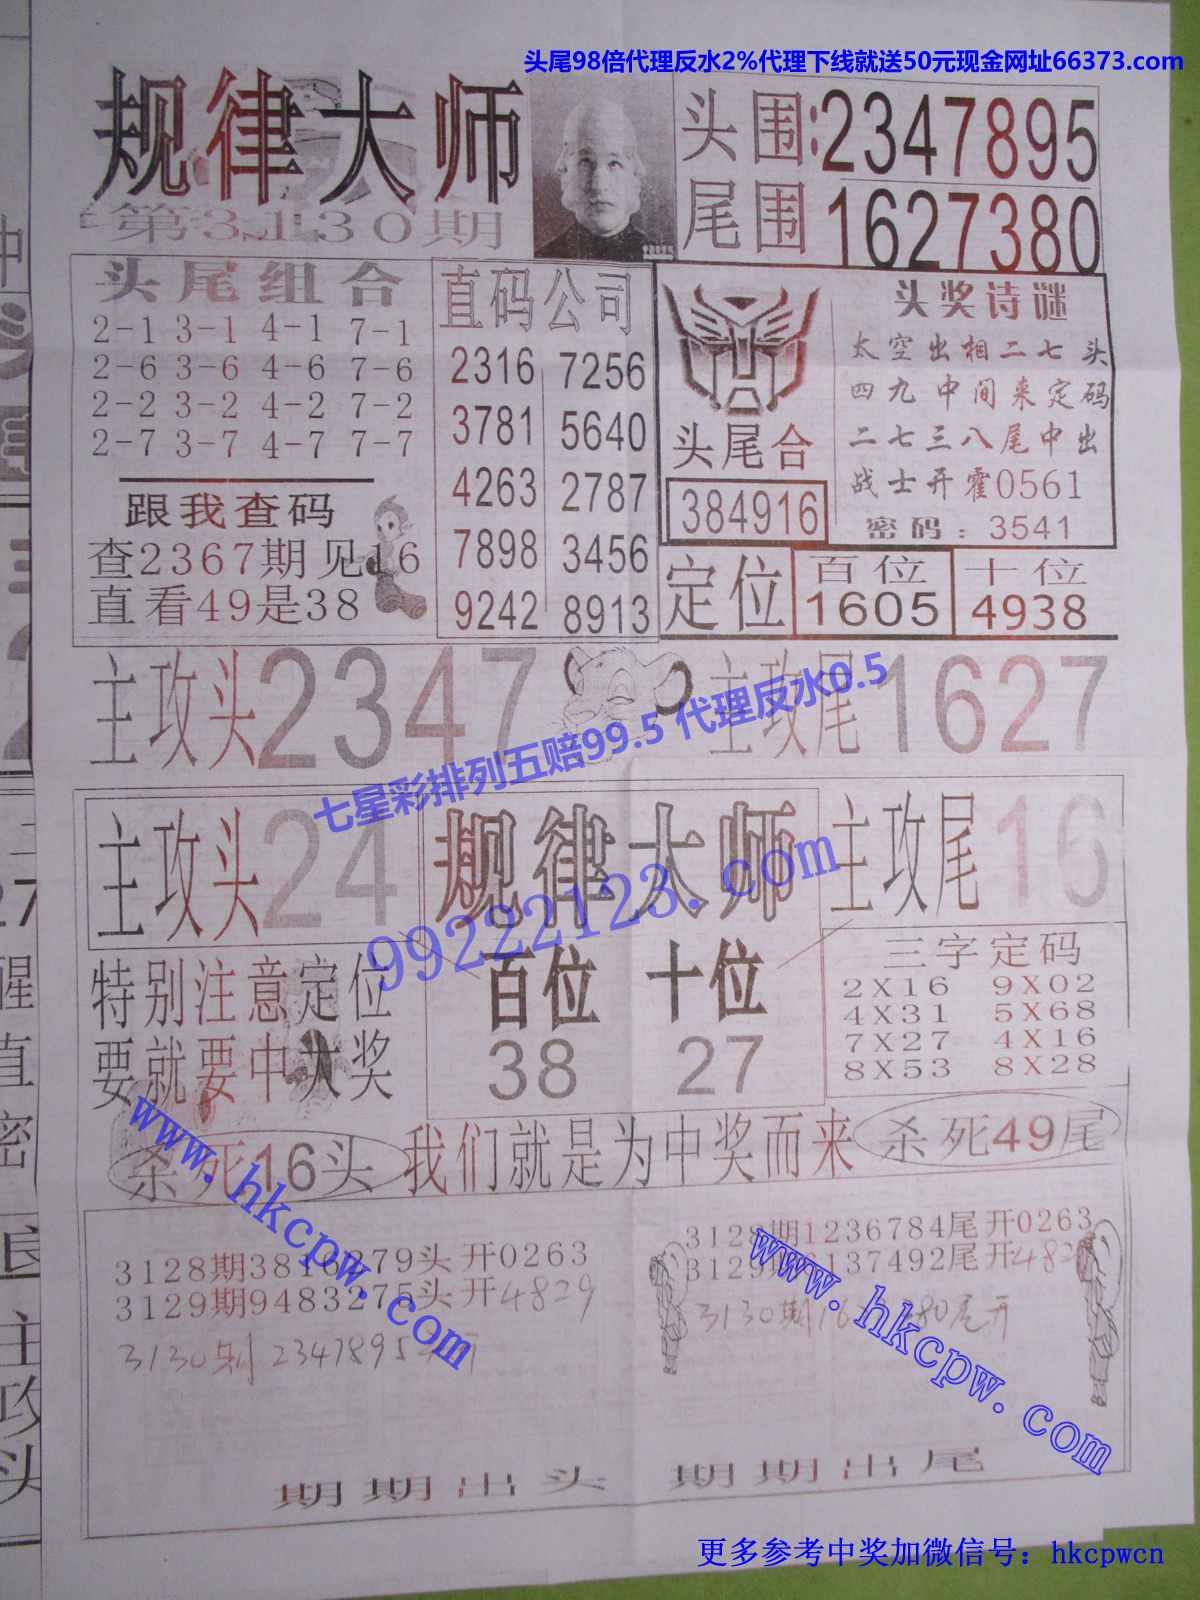 头尾98倍代理反水2%代理下线就送50元现金网址66373.com
规律大师
第3130期
头围:2347895
尾围 1627380
头尾组合
2-1 3-1 4-1 7-1
2-6 3-6 4-6 7-6
2-2 3-2 4-2 7-2
2-7 3-7 4-7 7-7
跟我查码
查2367期见16
直看49是38
直码公司
2316 7256
3781 5640
4263 2787
7898 3456
9242 8913
头尾合
384916
头奖诗谜
太空出相二七头
四九中间来定码
二七三八尾中出
战士开霍0561
密码:3541
定位
百位
1605
十位
4938
主攻头2347
主攻尾1627
七星彩排列五赔99.5 代理反水0.5
99222123.com
主攻头24
规律大师
主攻尾16
特别注意定位
要就要中大奖
百位 十位
38 27
三字定码
2X16 9X02
4X31 5X68
7X27 4X16
8X53 8X28
杀死16头
我们就是为中奖而来
杀死49尾
www.hkcpw.com
3128期3816279头开0263
3129期9483275头开4829
3130期 2347895
3128期1236784尾开0263
3129期 137492尾开482
3130期16 380尾开
www.hkcpw.com
期期出头 期期出尾
更多参考中奖加微信号:hkcpwcn